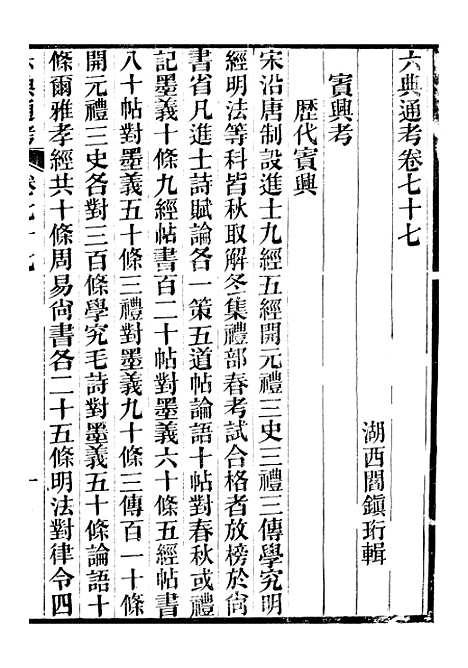 六典通考卷七十七
湖西閻鎭珩輯
賓興考
歷代賓興
宋沿唐制設進士九經五經開元禮三史三禮三傳學究明
經明法等科皆秋取解冬集禮部春考試合格者放榜於尙
書省凡進士詩賦論各一策五道帖論語十帖對春秋或禮
記墨義十條九經帖書百二十帖對墨義六十條五經帖書
八十帖對墨義五十條三禮對墨義九十條三傳百一十條
開元禮三史各對三百條學究毛詩對墨義五十條論語十
條爾雅孝經共十條周易尙書各二十五條明法對律令四
六典通考 卷七十七 一